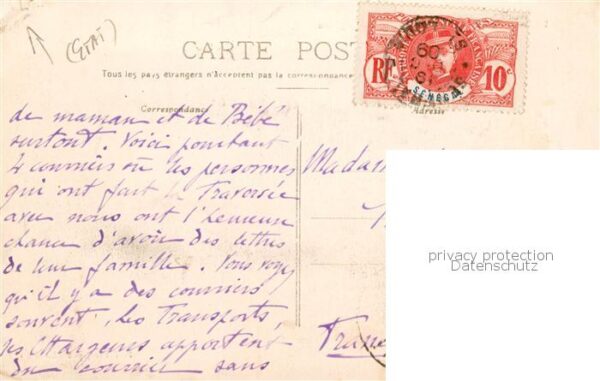 (ETAT)
CARTE POST
Tous les pays étrangers n'Acceptent pas la correspondance
RF SENEGAL 10c
Correspondance
Adresse
de maman et de Bébé
surtout. Voici pourtant
4 courriers où les personnes
qui ont fait la Traversée
avec nous ont l'heureuse
chance d'avoir des lettres
de leur famille. Vous voyez
qu'il y a des courriers
souvent, les Transports,
les Chargeurs apportent
du courrier sans
Madam
privacy protection
Datenschutz
Franc